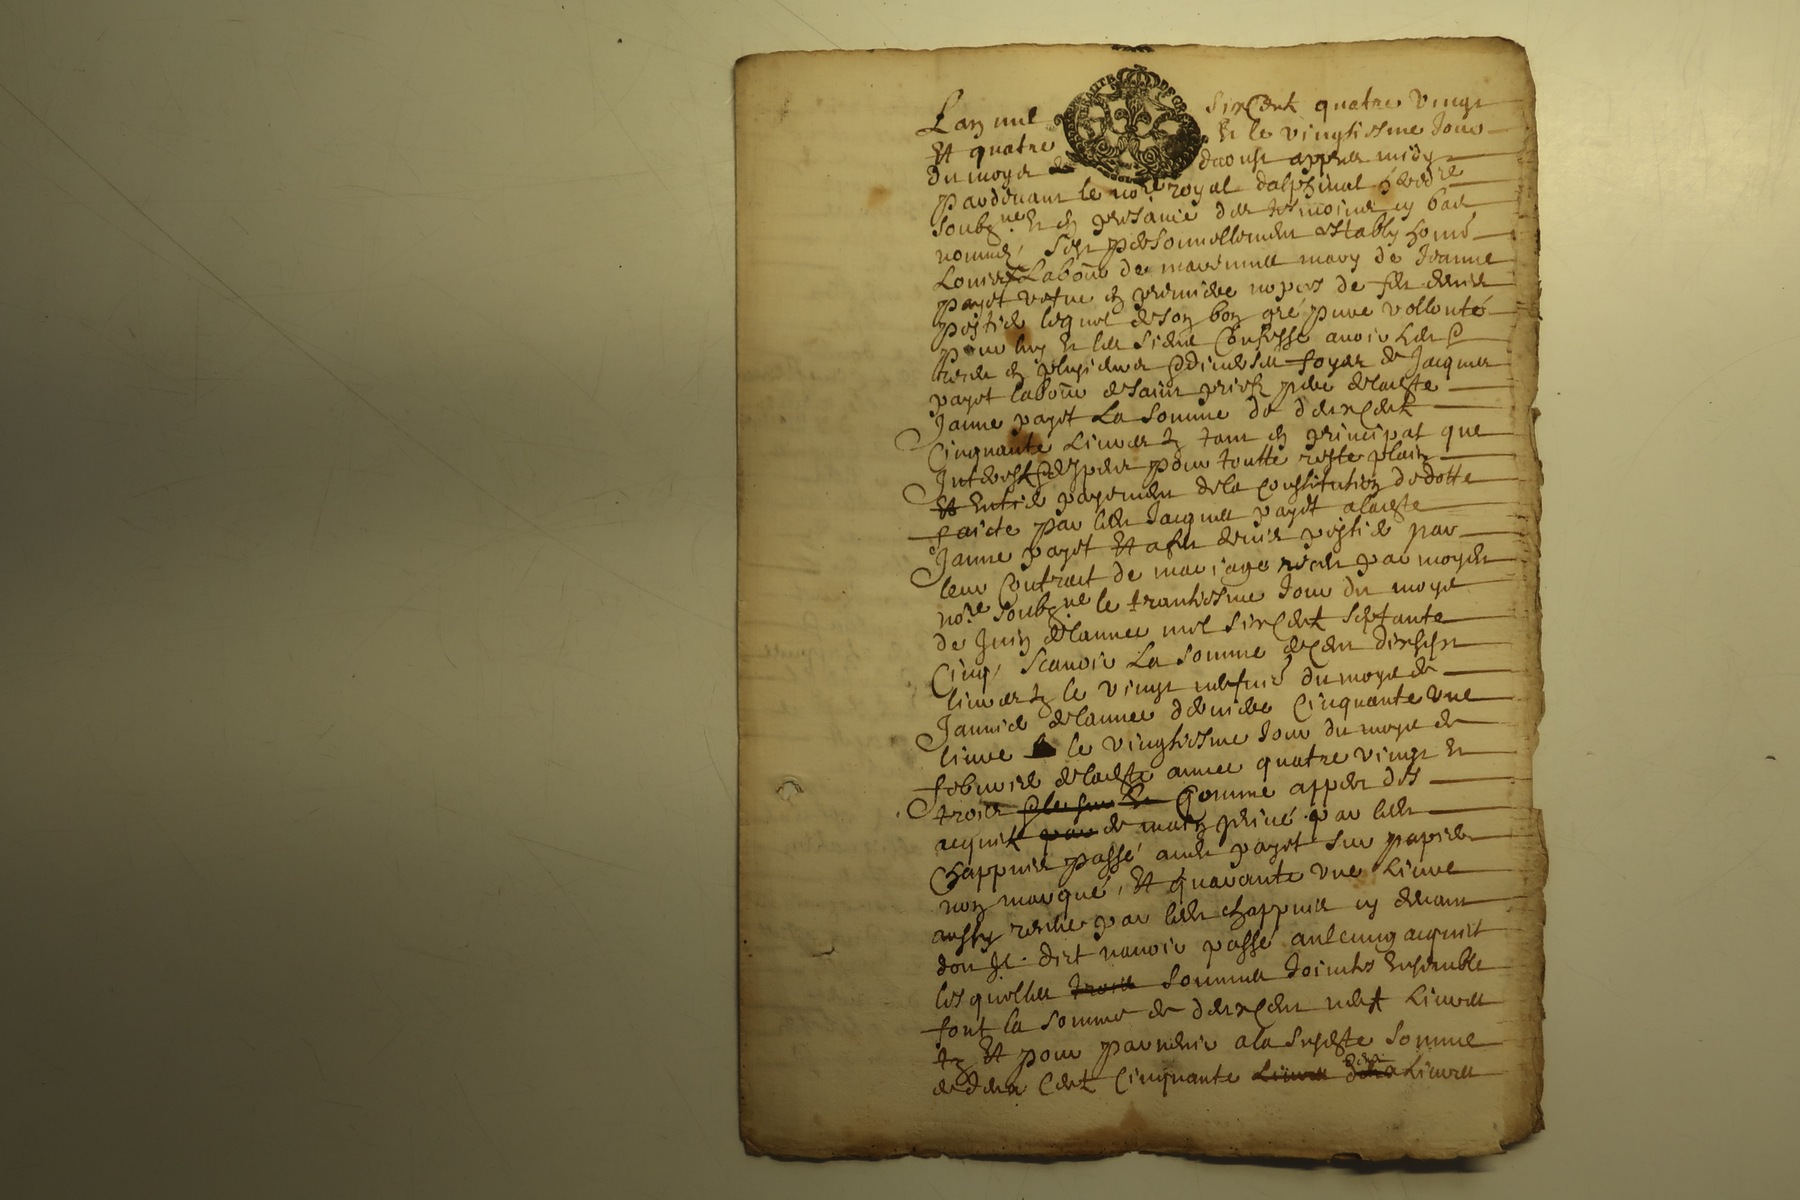 Lan mil sixCent quatre vingt
Et quatre Et le vingtiesme Jour
du moys daoust appres midy
pardevant le nore royal dalphinal heredre
soubzne Et en presance des tesmoins cy bas
nommés Sest personnellement estably home
Louis Laboure de mary de Jeanne
payet vefve en premiere nopces de feu
lequel de son bon gré pure vollonté
pour luy Et les siens Confesse avoir heu &
receu en plusieurs & diverses foyes de Jacques
payet laboure de saint priest pere de laditte
Janne payet La somme de deuxCent
Cinquante Livres tz tant en principal que
Interest & despens pour toutte reste plain
Et Entier payement de la constitution de dotte
faicte par ledt Jacques payet a laditte
Janne payet Et afeu par
leur Contract de mariage receu par moydt
nore soubzne le trantiesme Jour du moys
de Juin de lannee mil sixCent septante
Cinq, Scavoir La somme de Cent dixhuit
livres tz le vingt neufme du moys de
Janvier de lannee derniere Cinquante une
livre le vingtiesme Jour du moys de
febvrier de laditte annee quatre vingt Et
trois Comme appert des
acquit de main privé par ledt
Chappuis passé audt payet sur papier
non marqué, Et quarante une Livre
aussy receue par ledt Chappuis cy devant
don Il dict navoir passé aulcung acquit
lesquelles trois sommes Jointes Ensemble
font la somme de deuxCent neuf Livres
tz Et pour parvenir a la susditte somme
de deux Cent Cinquante Livres Livres